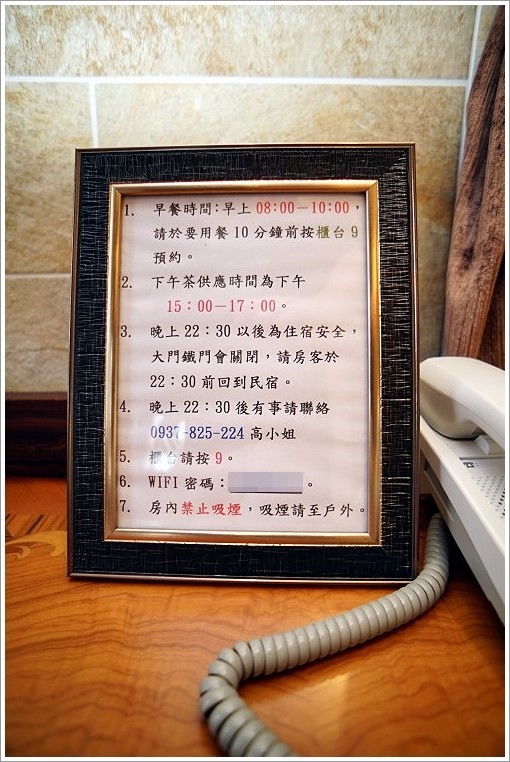 1. 早餐時間：早上 08:00－10:00，
請於要用餐 10 分鐘前按櫃台 9
預約。
2. 下午茶供應時間為下午
15：00－17：00。
3. 晚上 22：30 以後為住宿安全，
大門鐵門會關閉，請房客於
22：30 前回到民宿。
4. 晚上 22：30 後有事請聯絡
0937-825-224 高小姐
5. 櫃台請按 9。
6. WIFI 密碼： 。
7. 房內禁止吸煙，吸煙請至戶外。